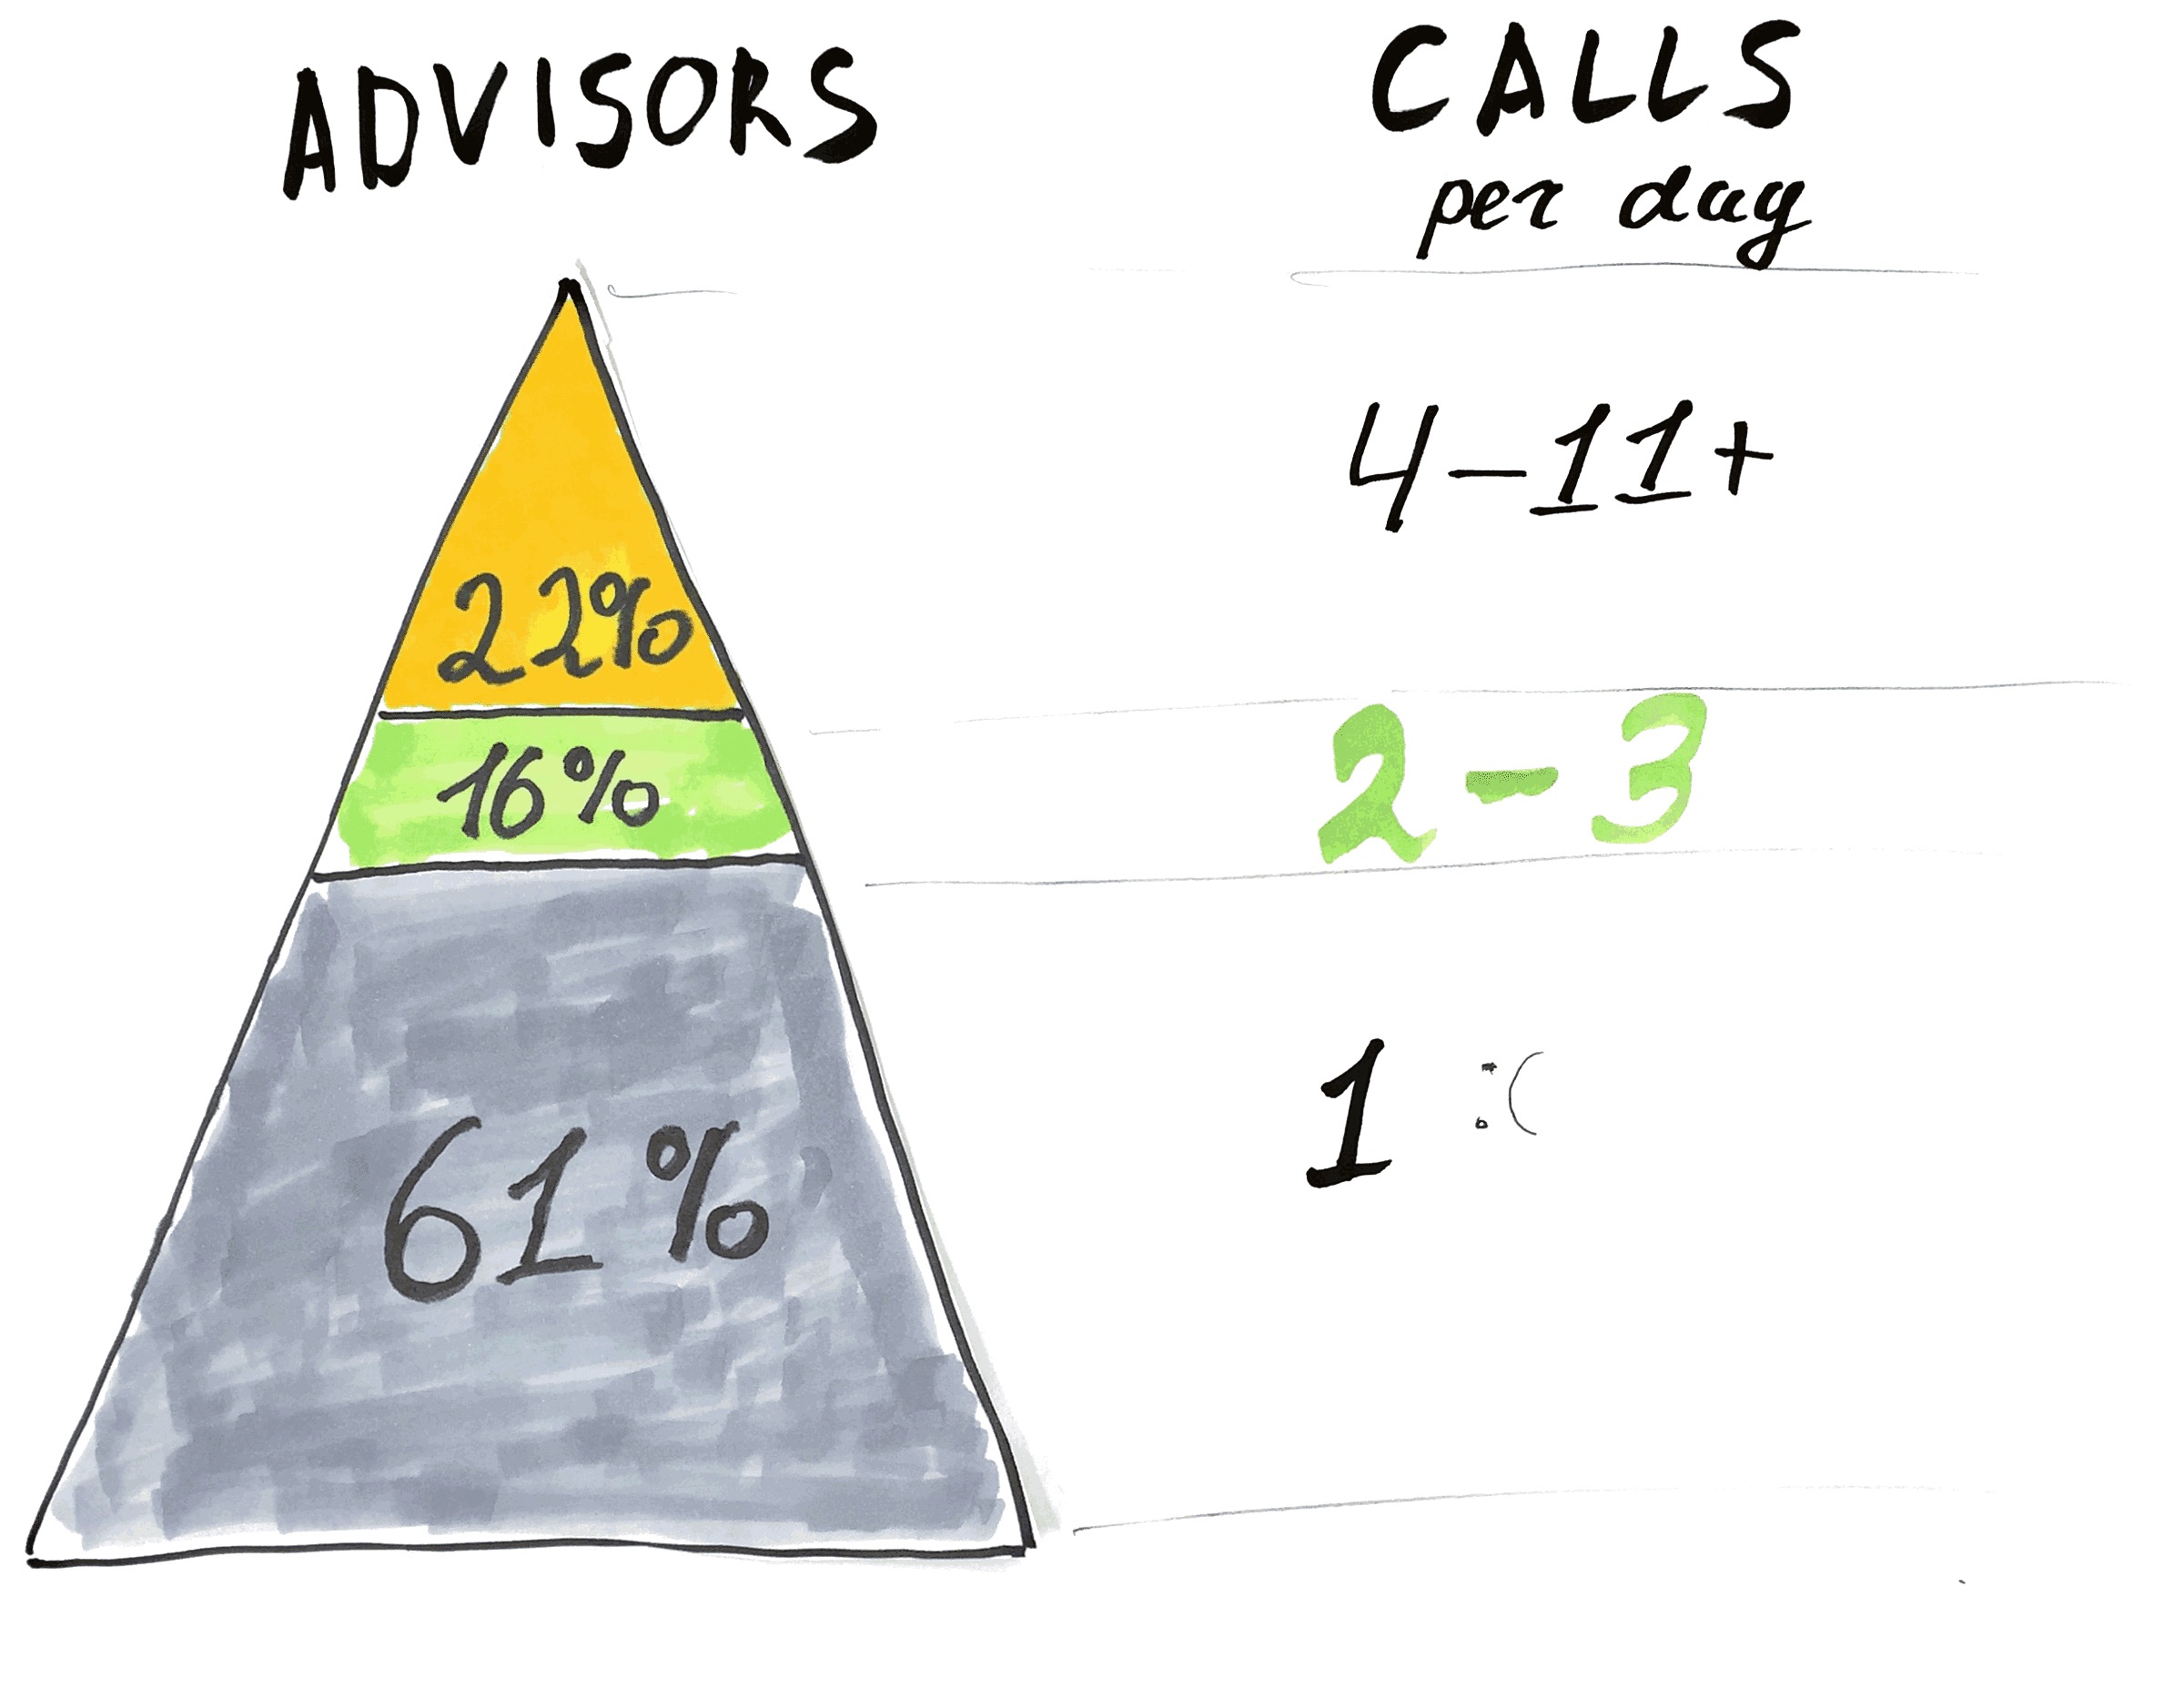 ADVISORS
CALLS
per day
22%
4-11+
16%
2-3
61%
1 :(